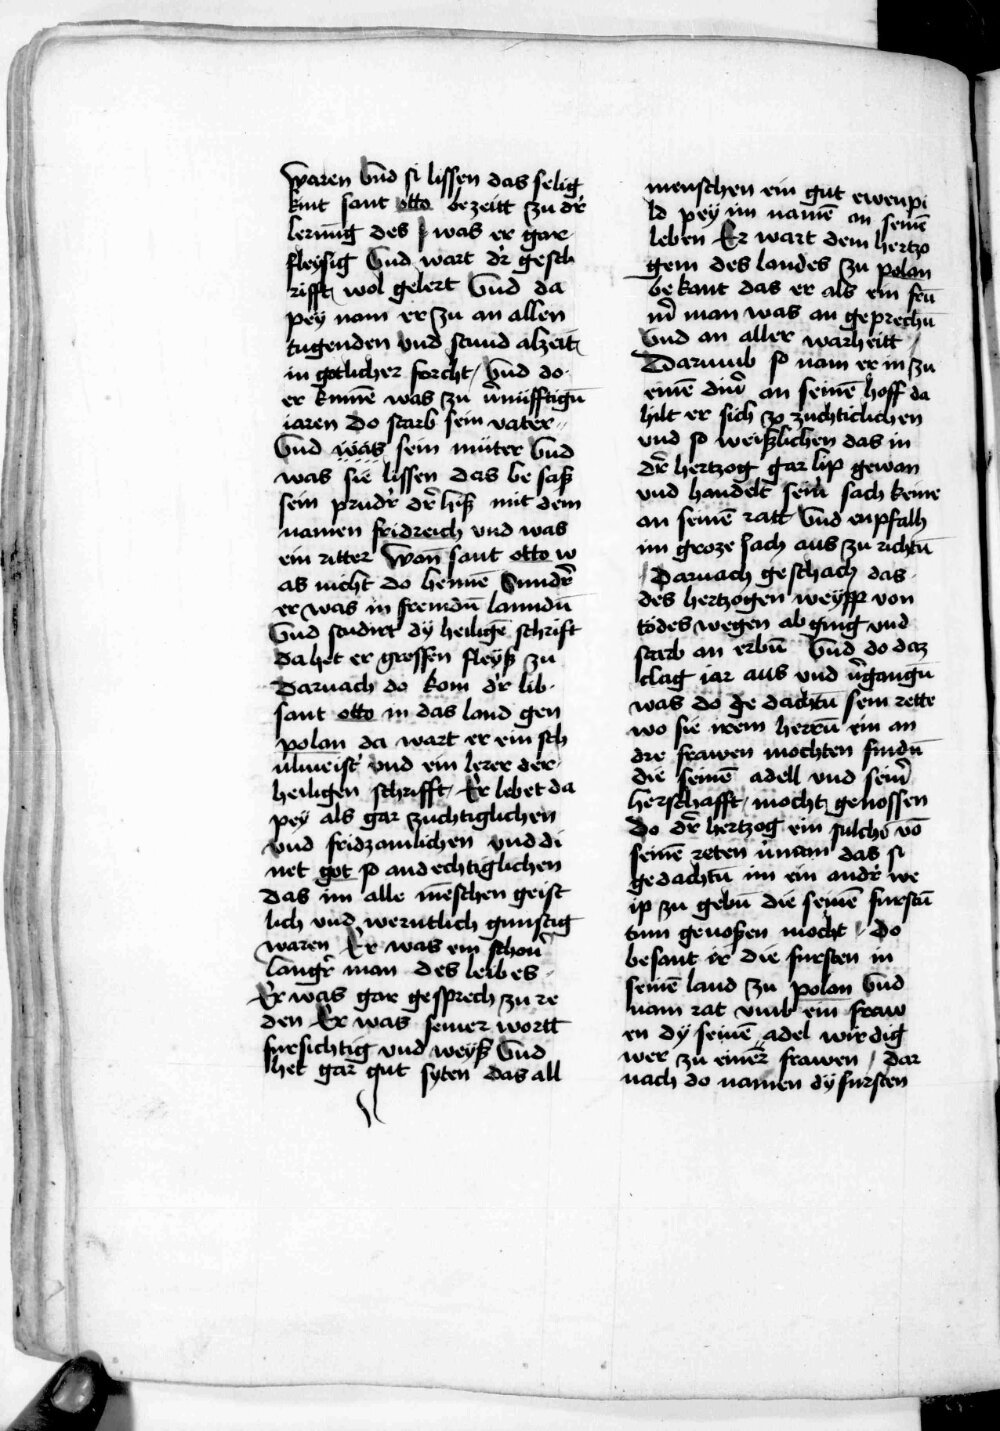 waren Vnd si lissen das selig
kint sant otto bezeitt zu dr̄
lernūg des / was er gar
fleysig Vnd wart dr̄ gesch
rifft wol gelert Vnd da
pey nam er zu an allen
tugenden vnd stund alzeit
in gotlicher forcht / Vnd do
er kumē was zu v̄nufftigū
iaren Do starb sein vater
Vnd was sein muter Vnd
was sie lissen das besaß
sein prudr̄ dr̄ hiß mit dem
namen fridreich vnd was
ein ritter Wan̄ sant otto w
as nicht do heimē Sundr̄
er was in fremdū lanndū
Vnd studirt dy heiligē schrift
da het er grossen fleyß zu
Darnach do kom dr̄ lib
sant otto in das land gen
polan da wart er ein sch
ulmeistr̄ vnd ein lerer der
heiligen schrifft / Er lebet da
pey als gar zuchtiglichen
vnd fridzamlichen vnd di
net got so andechtiglichen
das im alle mēschen geist
lich vnd werntlich gunstig
waren Er was ein schon̄
langr̄ man des leibes
Er was gar gesprech zu re
den Er was seiner wortt
fursichtig vnd weyß Vnd
het gar gut syten das all
menschen ein gut ewenpi
ld pey im namē an seinē
leben Er wart dem hertzo
gem des landes zu polan
bekant das er als ein frū
m̄ man was an geprechū
Vnd an aller warheitt /
Darumb so nam er in zu
einē din̄ an seinē hoff da
hilt er sich zo zuchticlichen
vnd so weißlichen das in
dr̄ hertzog gar lip gewan
vnd handelt sein̄ sach keine
an seinē ratt Vnd enpfalh
im groze sach aus zu richtū
/ Darnach geschach das
des hertzogen weypp von
todes wegen ab ging vnd
starb an erbū Vnd do daz
clag iar aus vnd v̄gangū
was do gedachtū sein rette
wo sie irem herrū ein an
dre frawen mochten findū
die seinē adell vnd sein̄
herschafft mocht genossen
Do dr̄ hertzog ein sulchs vō
seinē reten v̄nam das si
gedachtū im ein andr̄ we
ip zu gebū die seinē furstū
tum genoßen mocht / Do
besant er die fursten in
seinē land zu polan Vnd
nam rat vmb ein fraw
en dy seinē adel wirdig
wer zu einer frawen / Dar
nach do namen dy fursten